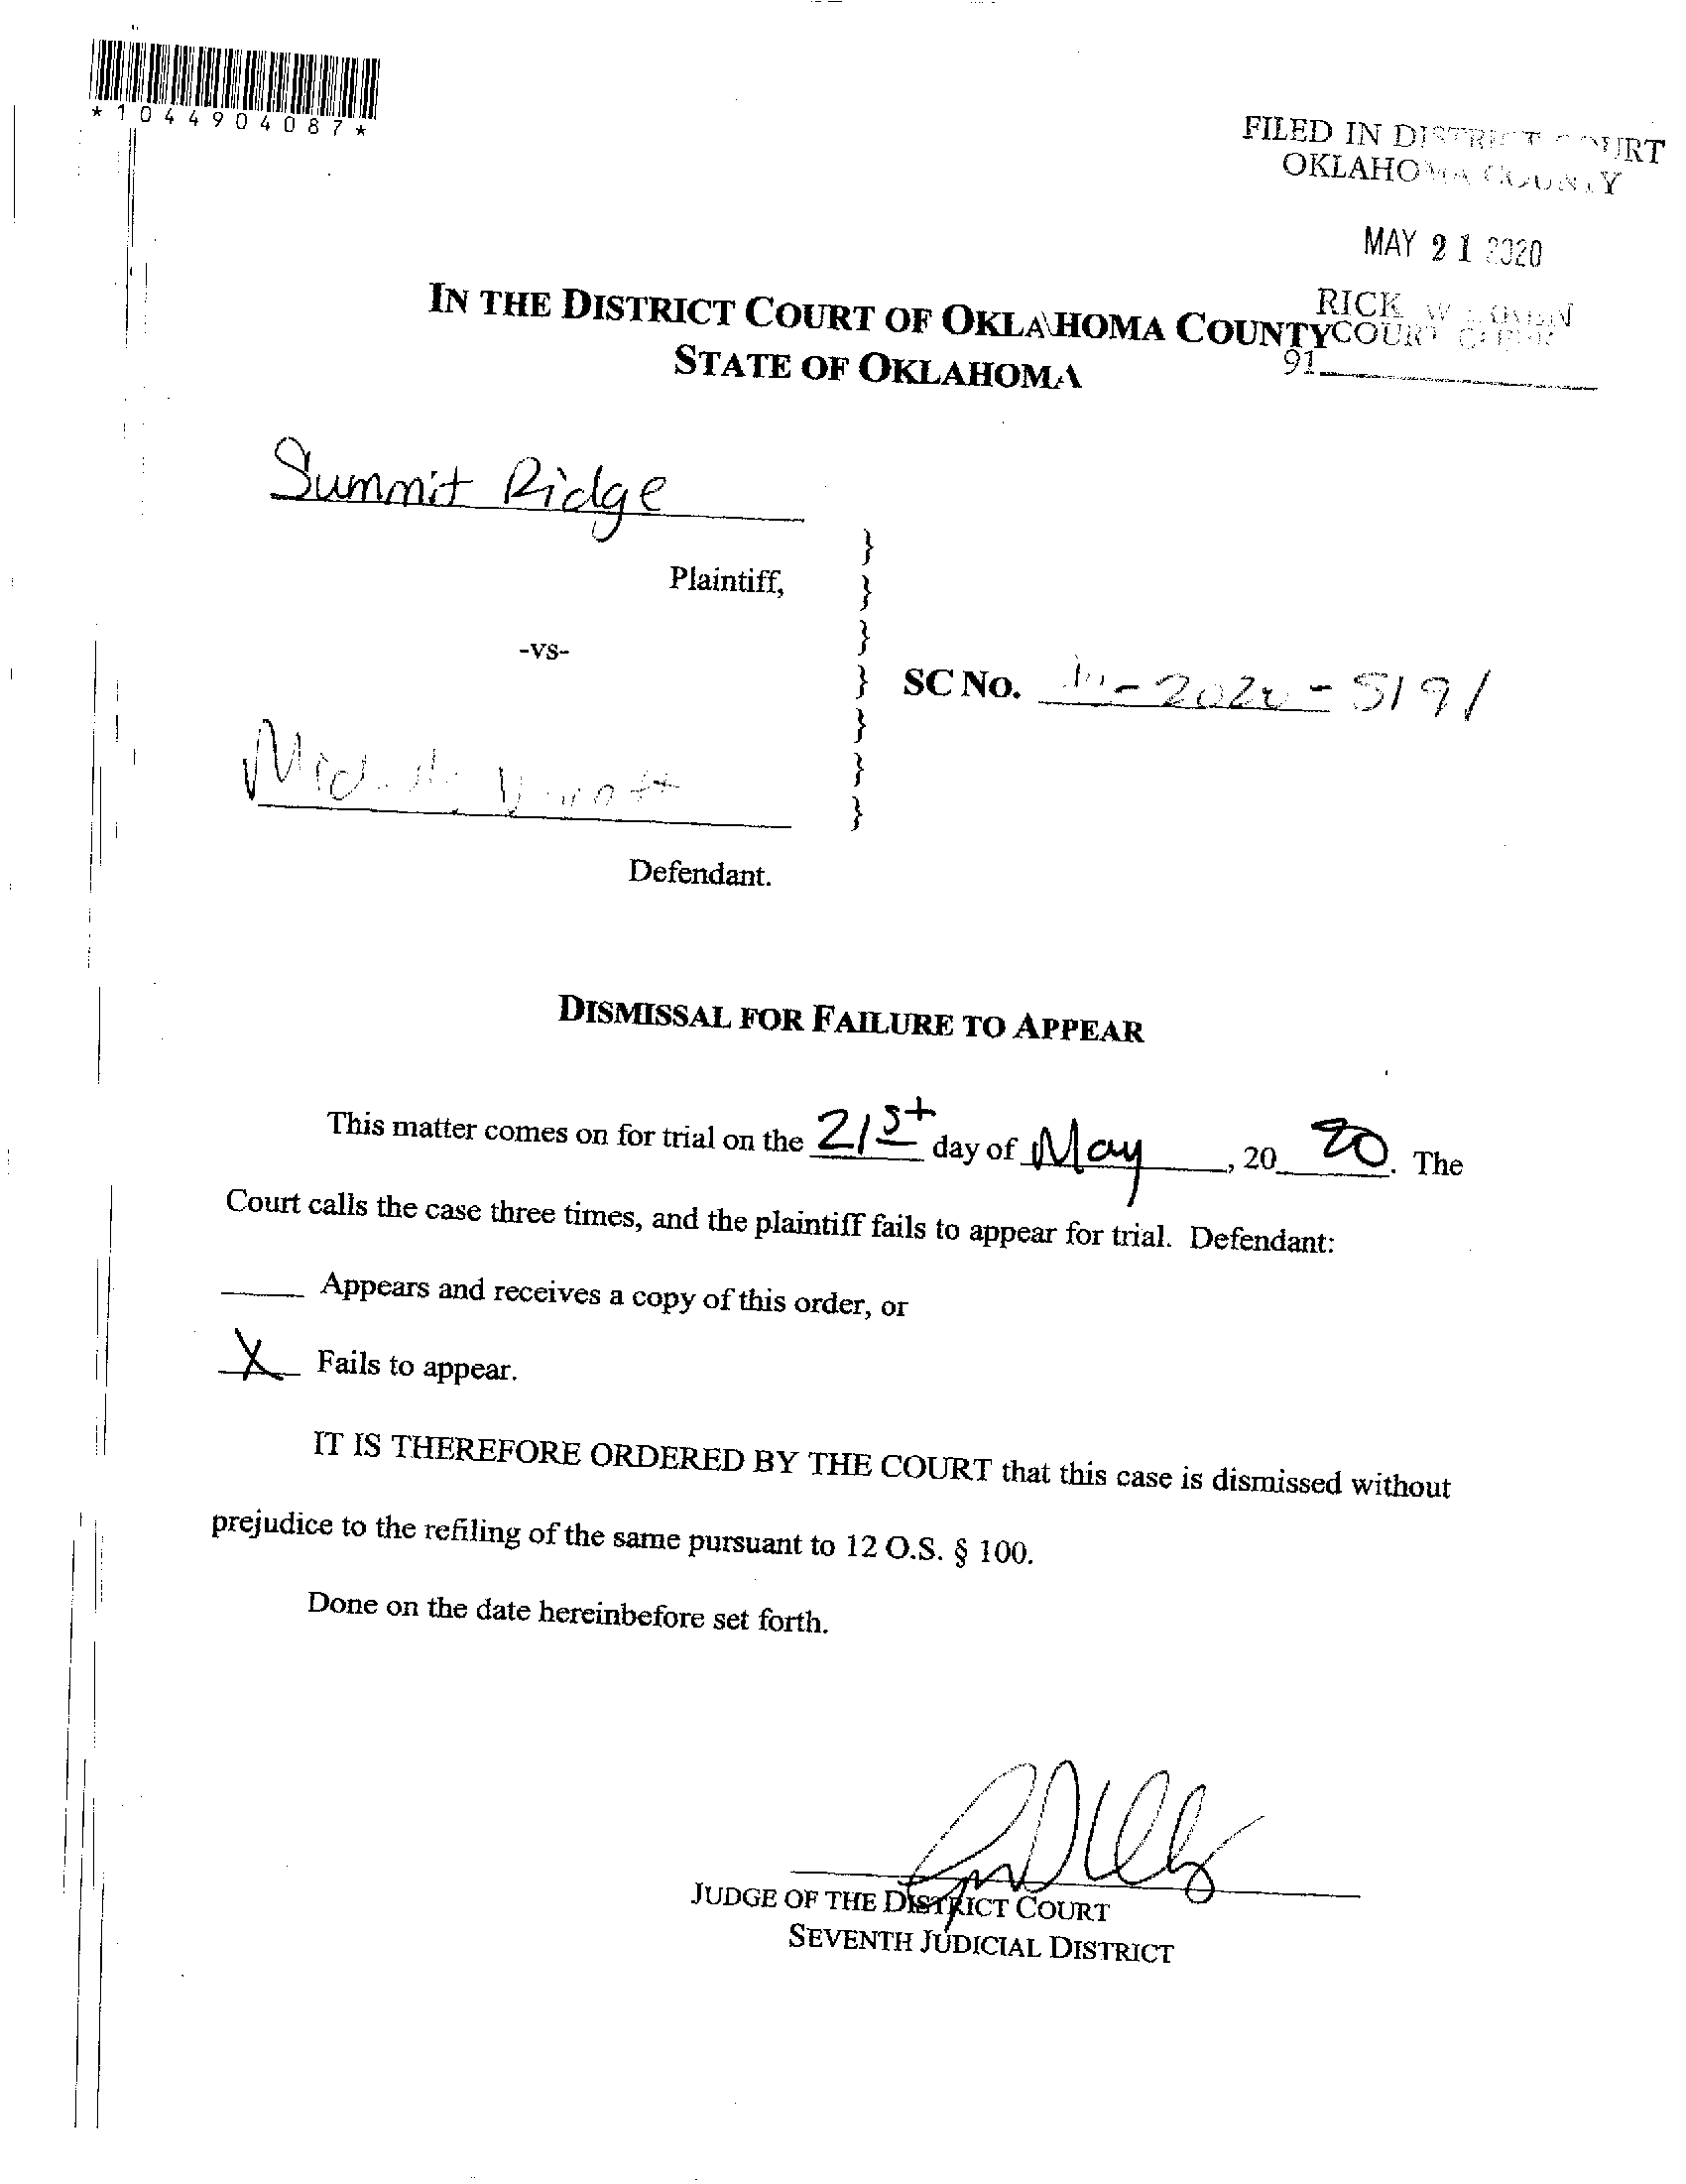 *1044904087*
FILED IN DISTRICT COURT
OKLAHOMA COUNTY
MAY 21 2020
RICK WARREN
COURT CLERK
91
IN THE DISTRICT COURT OF OKLAHOMA COUNTY
STATE OF OKLAHOMA
Summit Ridge
Plaintiff,
-vs-
SC NO. -2020-5191
Defendant.
DISMISSAL FOR FAILURE TO APPEAR
This matter comes on for trial on the 21st day of May, 20 20. The
Court calls the case three times, and the plaintiff fails to appear for trial. Defendant:
Appears and receives a copy of this order, or
X Fails to appear.
IT IS THEREFORE ORDERED BY THE COURT that this case is dismissed without
prejudice to the refiling of the same pursuant to 12 O.S. § 100.
Done on the date hereinbefore set forth.
JUDGE OF THE DISTRICT COURT
SEVENTH JUDICIAL DISTRICT